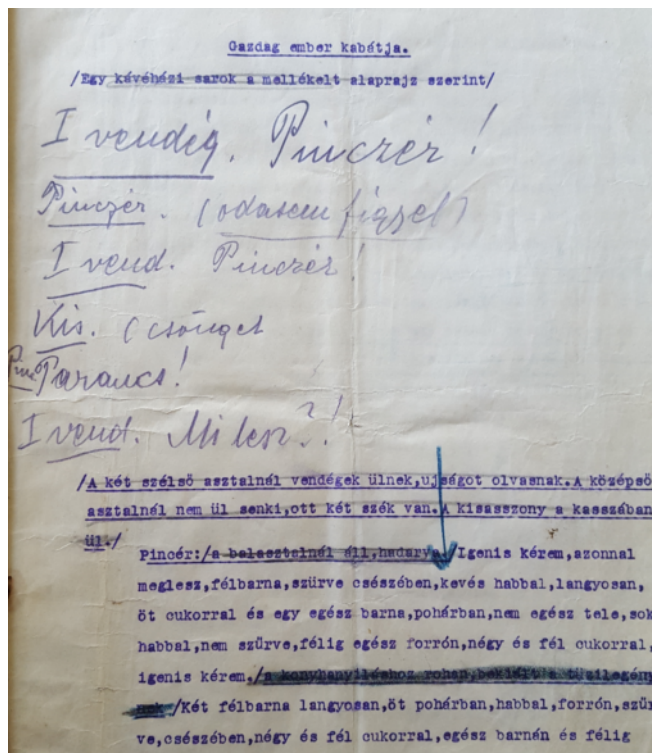 Gazdag ember kabátja.
/Egy kávéházi sarok a mellékelt alaprajz szerint/
I vendég. Pinczér!
Pinczér. (odasem figyel)
I vend. Pinczér!
Kis. (csönget
Pinc Parancs!
I vend. Mi lesz?!
/A két szélső asztalnál vendégek ülnek,ujságot olvasnak.A középső
asztalnál nem ül senki,ott két szék van.A kisasszony a kasszában
ül./
Pincér:/a balasztalnál áll,hadarva/Igenis kérem,azonnal
meglesz,félbarna,szürve csészében,kevés habbal,langyosan,
öt cukorral és egy egész barna,pohárban,nem egész tele,sok
habbal,nem szürve,félig egész forrón,négy és fél cukorral,
igenis kérem./a konyhanyiláshoz rohan,bekiált a
/Két félbarna langyosan,öt pohárban,habbal,forrón,szür
ve,csészében,négy és fél cukorral,egész barnán és félig